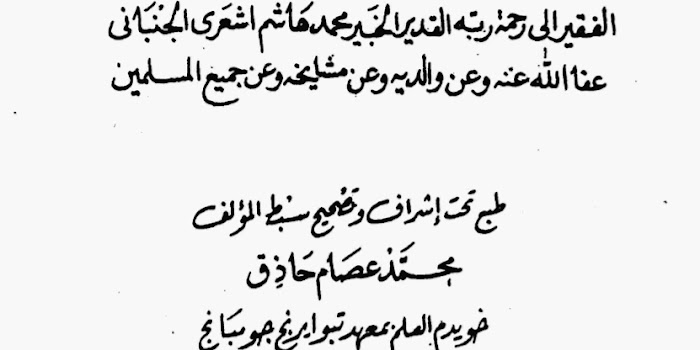 الفقير إلى رحمة ربّه القدير الخبير محمد هاشم اشعرى الجُنْبَانى
عفا اللّٰه عنه وعن والديه وعن مشايخه وعن جميع المسلمين
طبع تحت إشراف وتصْحيح سبْط المؤلف
محمَّدْ عصَام حَاذِق
خويدم العلم بمعهد تبو ايرنج جومبَانج